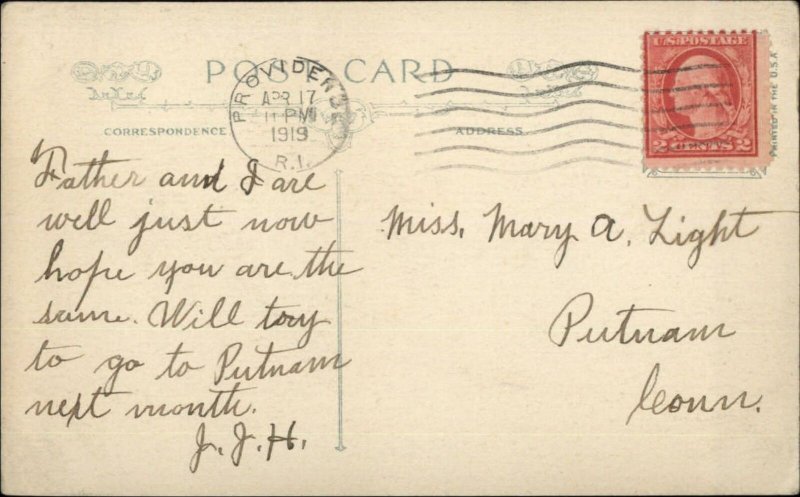 POST CARD
PROVIDENCE
APR 17
11 PM
1919
R.I.
U.S. POSTAGE
2 CENTS 2
PRINTED IN THE U.S.A.
CORRESPONDENCE
ADDRESS
Father and I are
well just now
hope you are the
same. Will try
to go to Putnam
next month.
J. J. H.
Miss. Mary A. Light
Putnam
Conn.